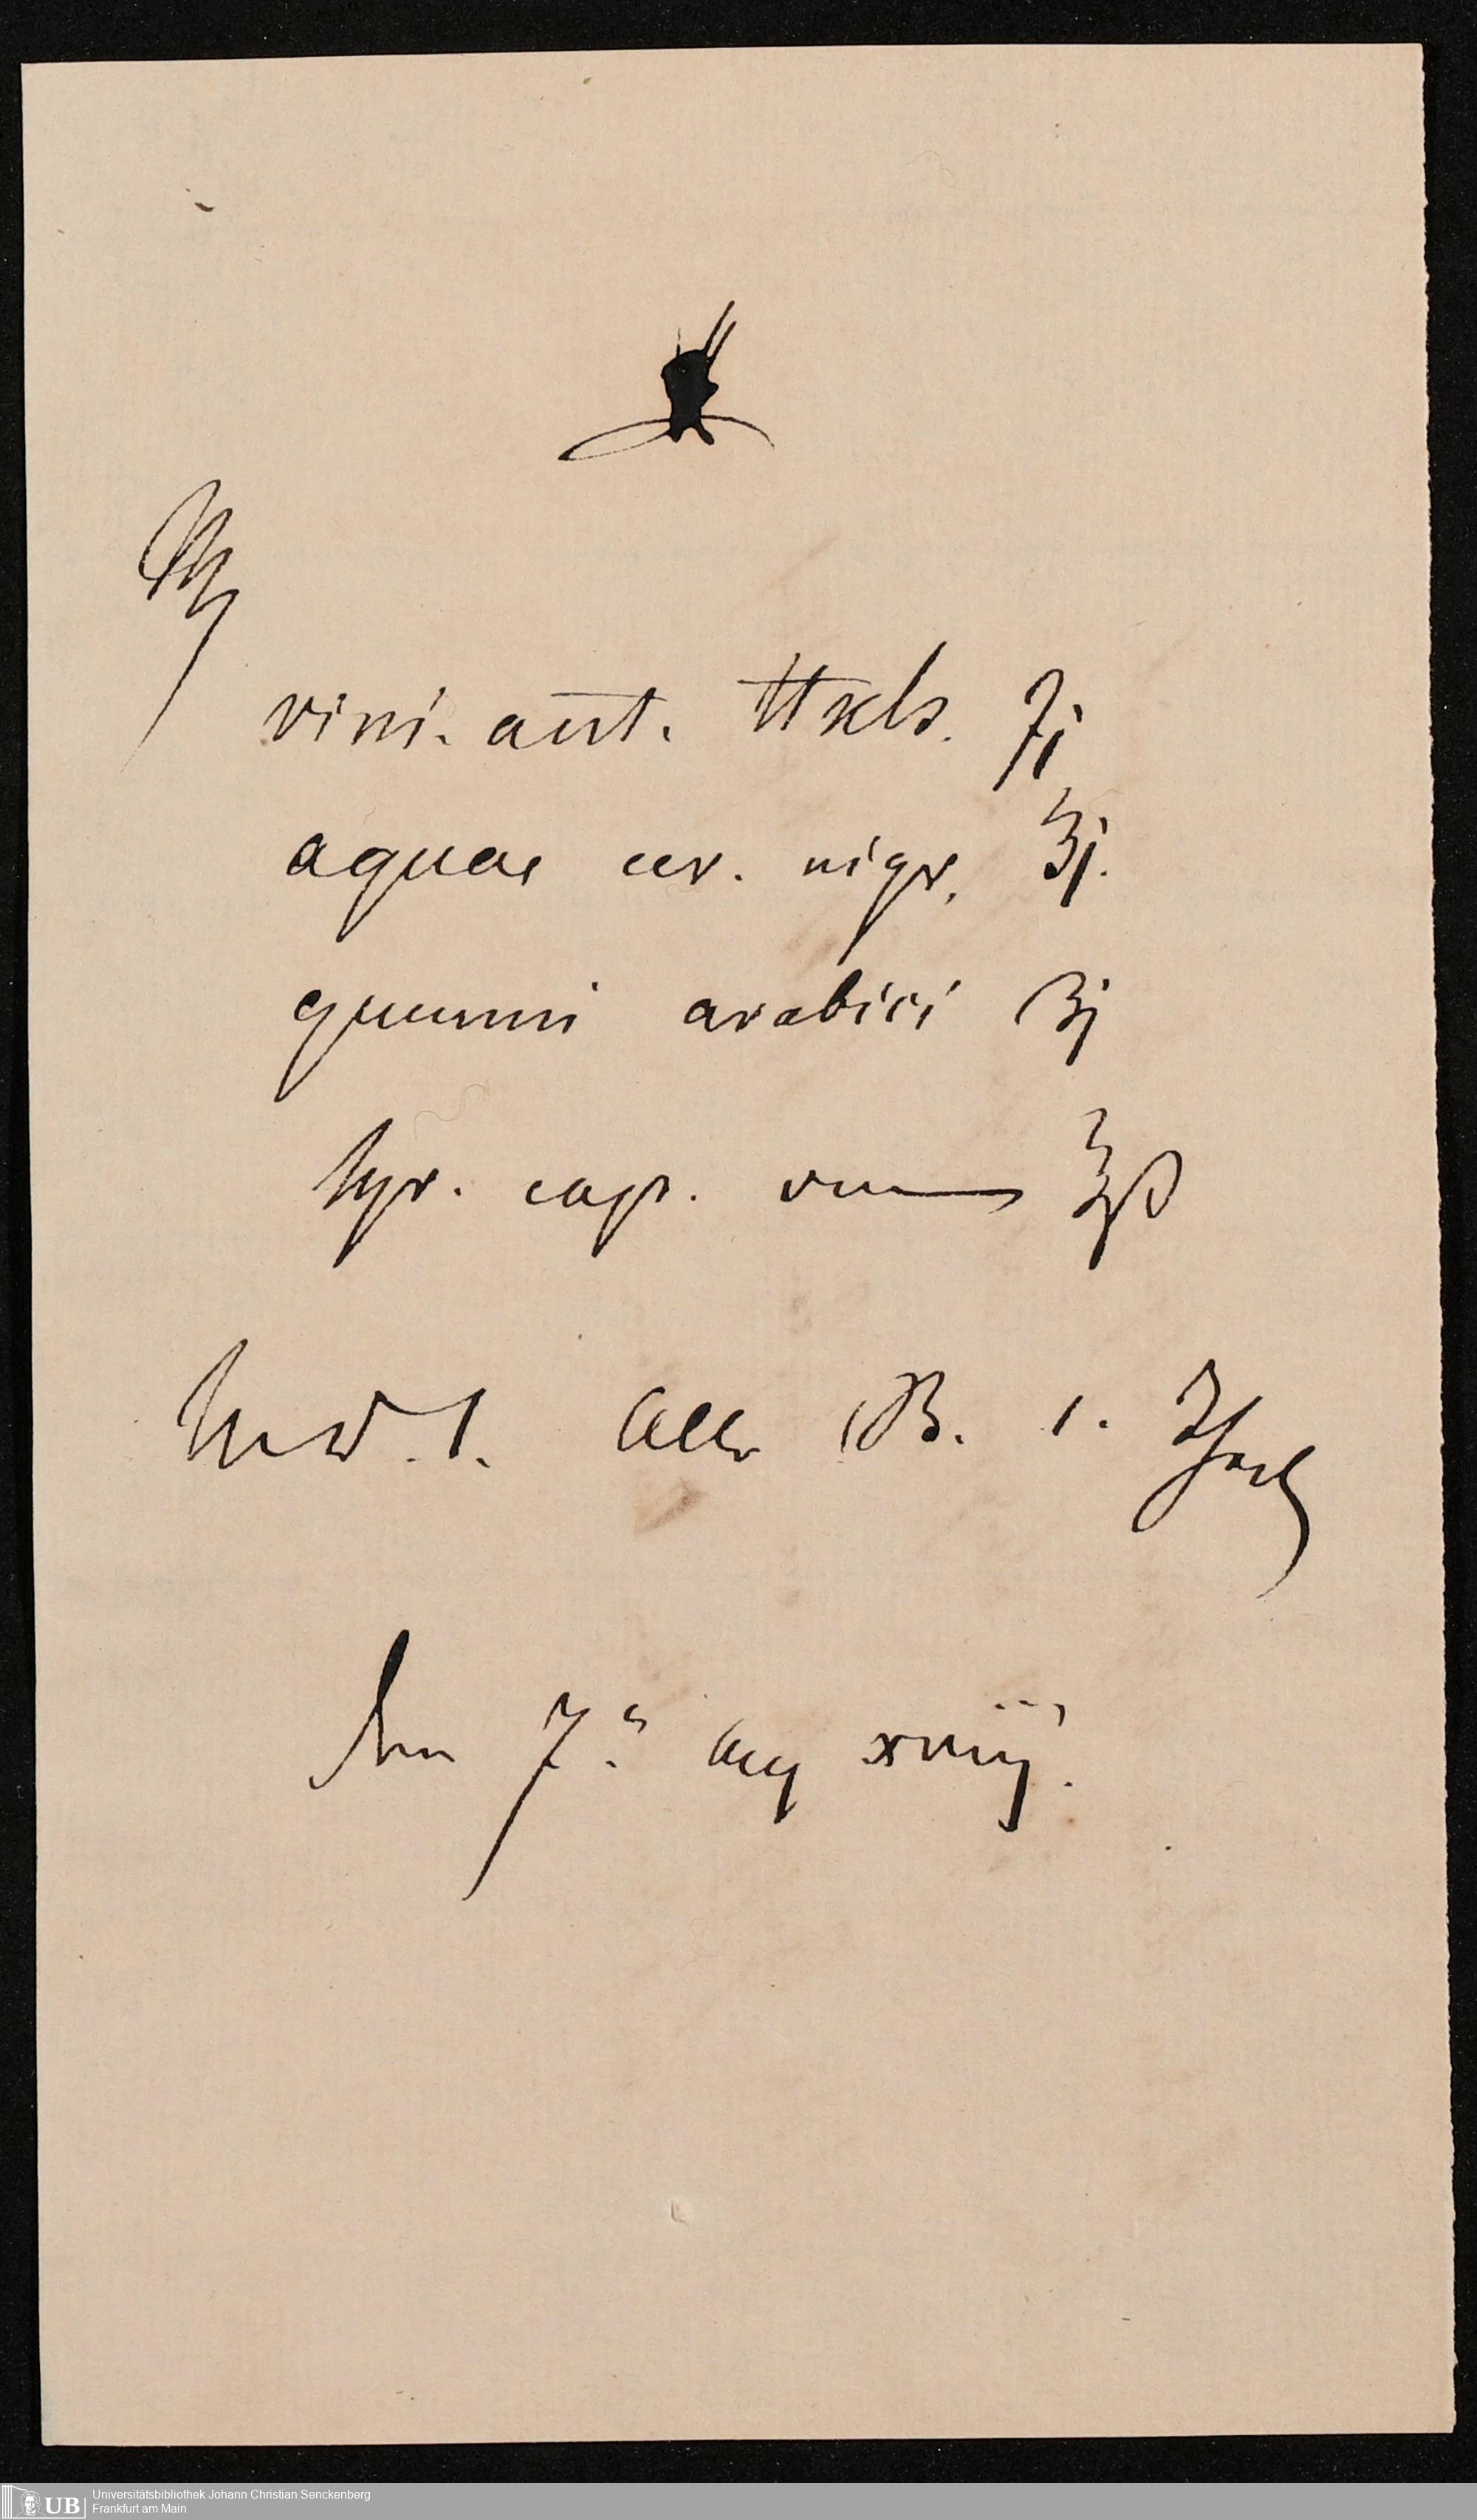 vini. ant. Huxh. ʒj
aquae cer. nigr. ℥j.
gummi arabici ʒj
Syr. cap. ven ℥ß
M.d.S. Alle St. 1. Theel
den 7.t Aug xviij.
UB
Universitätsbibliothek Johann Christian Senckenberg
Frankfurt am Main